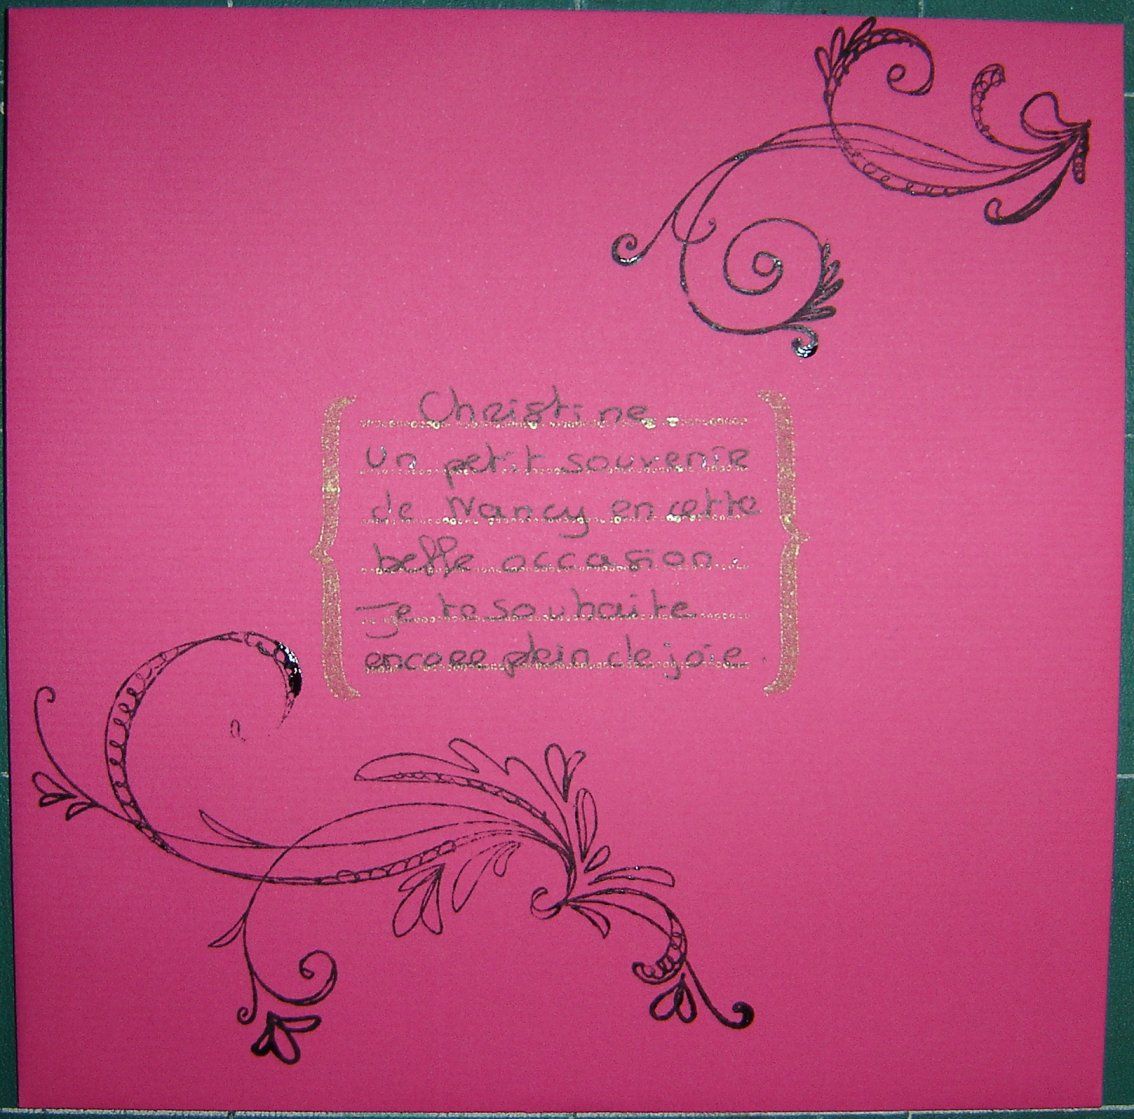 Christine
Un petit souvenir
de Nancy en cette
belle occasion.
Je te souhaite
encore plein de joie.